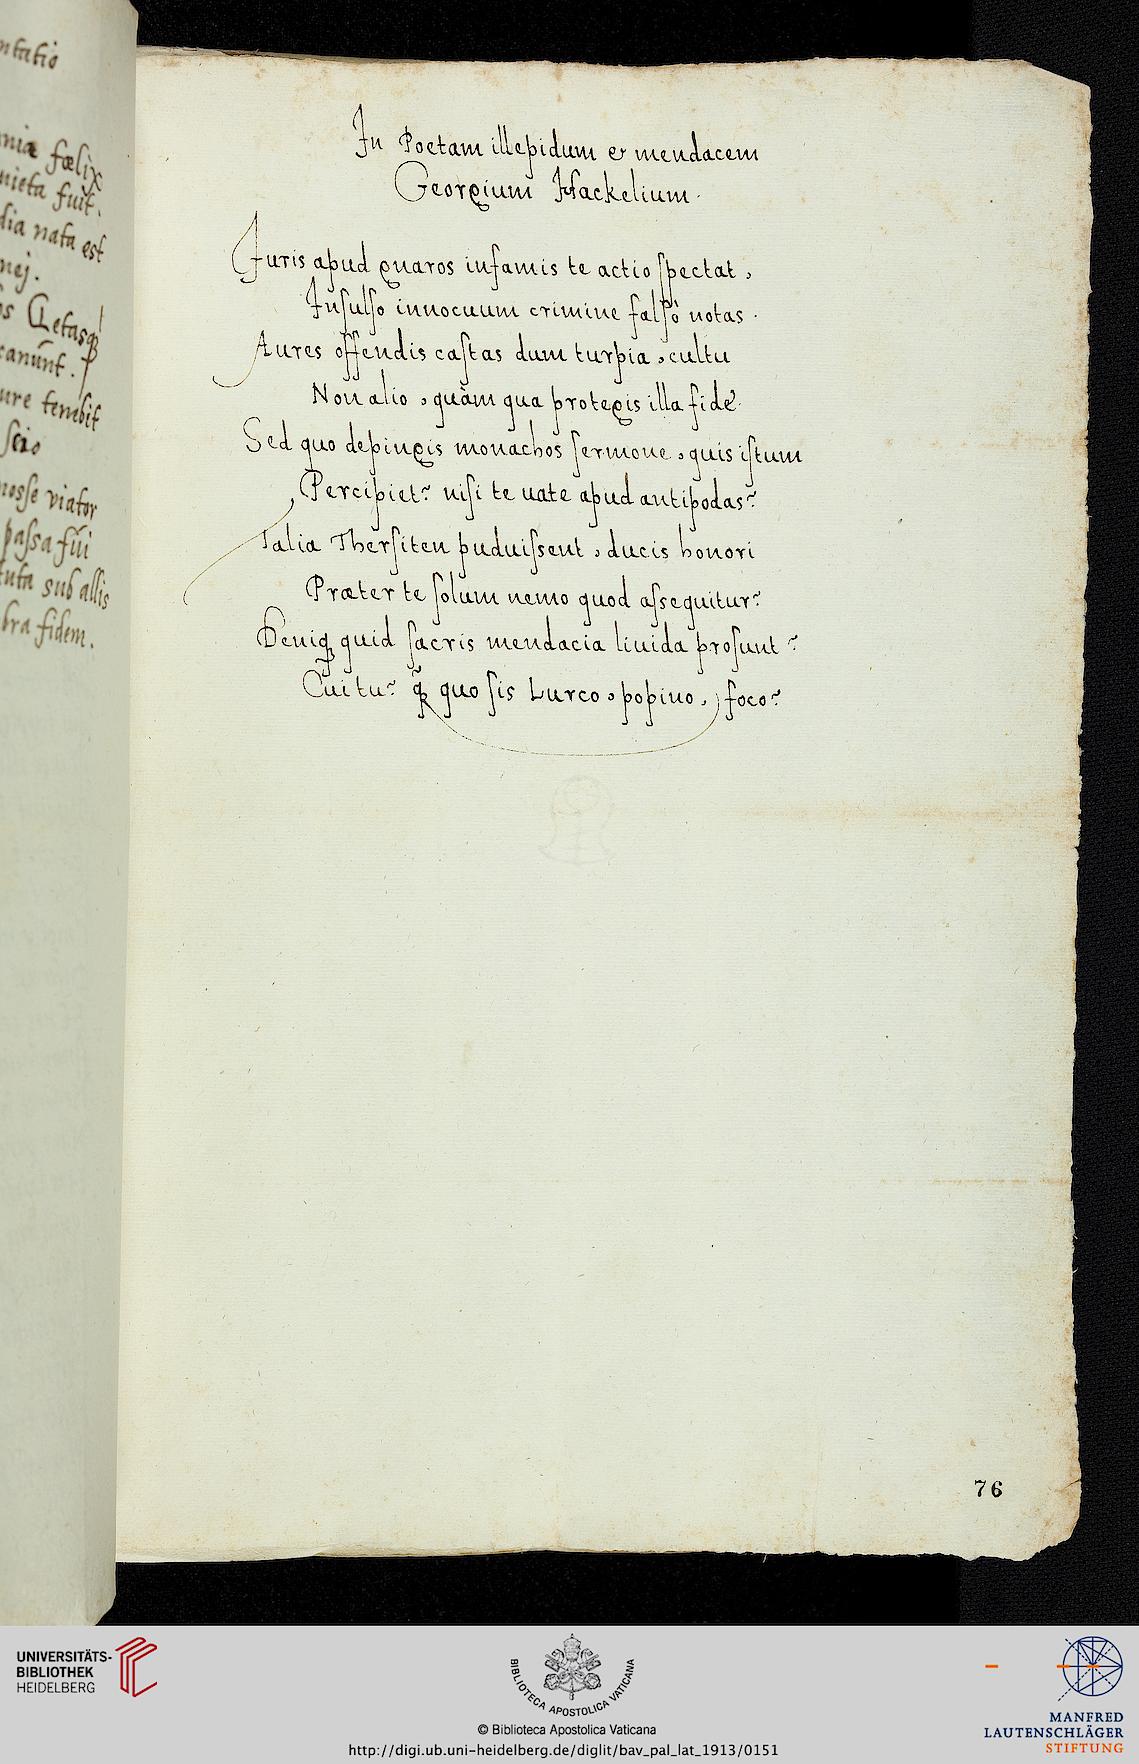 ntatio
niæ fœlix
nieta fuit.
dia nata est
nej.
os Getasq́
canunt.
ure tembit
scio
nosse viator
passa fui
tuta sub allis
bra fidem.
In Poetam illepidum & mendacem
Georgium Hackelium.
Juris apud gnaros infamis te actio spectat,
Insulso innocuum crimine falsò notas.
Aures offendis castas dum turpia, cultu
Non alio, quàm qua protegis illa fide.
Sed quo depingis monachos sermone, quis istum
Percipiet? nisi te uate apud antipodas?
Talia Thersiten puduissent, ducis honori
Præter te solum nemo quod assequitur?
Deniq́ quid sacris mendacia liuida prosunt?
Cui tu? q́ quo sis Lurco, popino, foco?
76
UNIVERSITÄTS-
BIBLIOTHEK
HEIDELBERG
BIBLIOTECA APOSTOLICA VATICANA
© Biblioteca Apostolica Vaticana
http://digi.ub.uni-heidelberg.de/diglit/bav_pal_lat_1913/0151
MANFRED
LAUTENSCHLÄGER
STIFTUNG